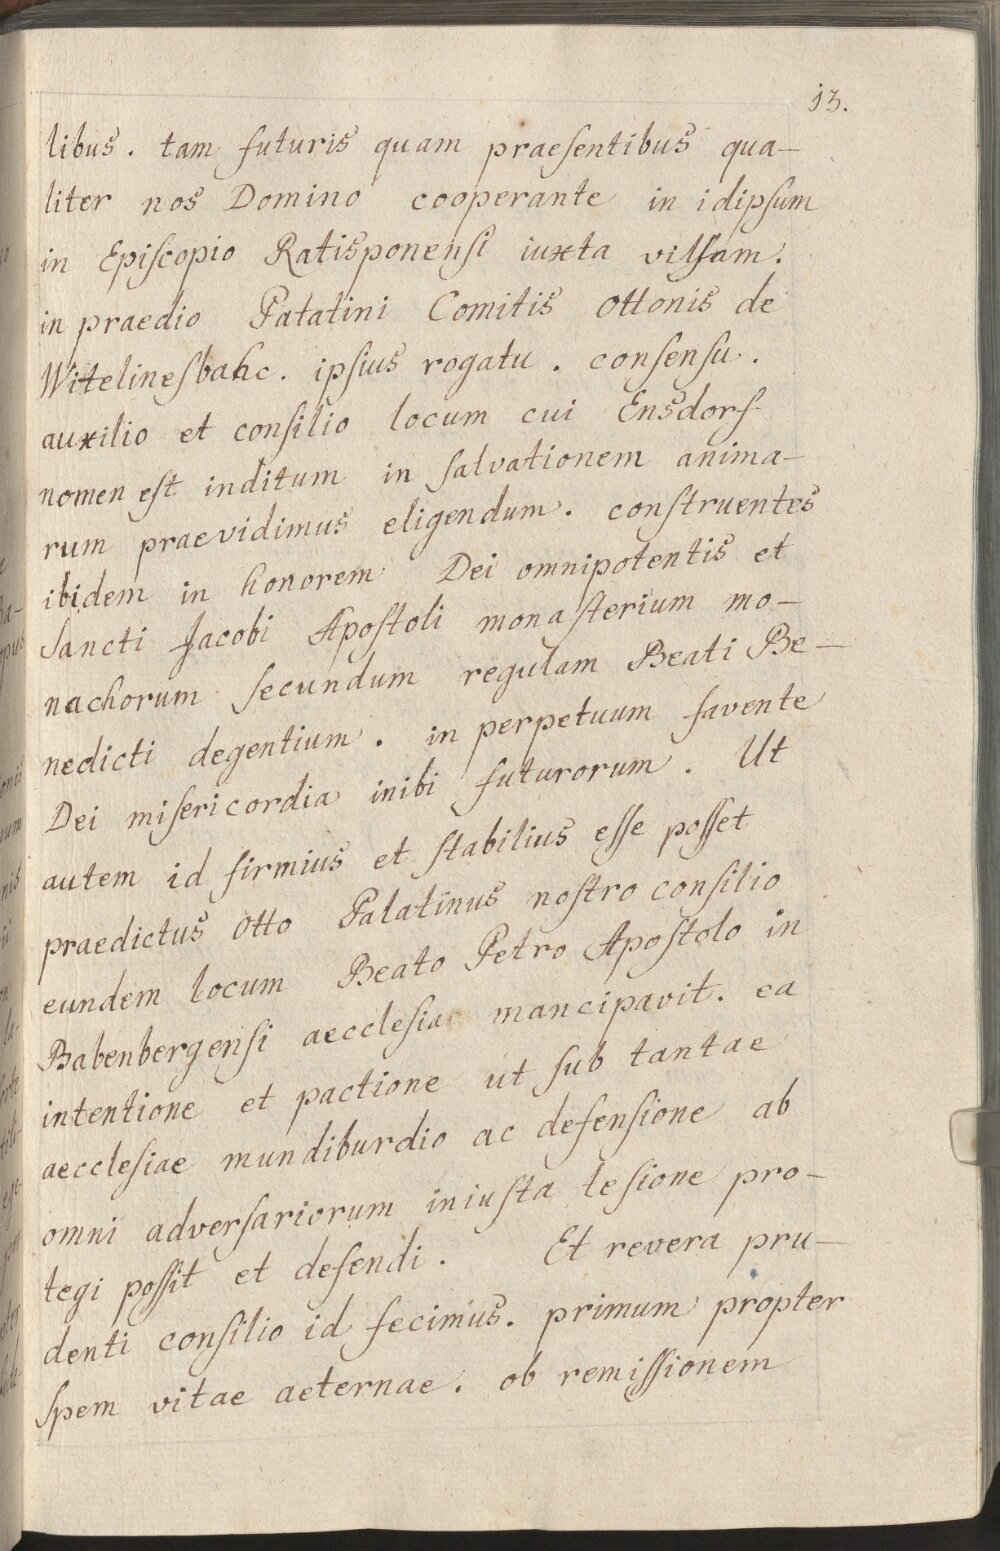 13.
libus. tam futuris quam praesentibus qua-
liter nos Domino cooperante in idipsum
in Episcopio Ratisponensi iuxta vilsam.
in praedio Palatini Comitis Ottonis de
Witelinesbahc. ipsius rogatu. consensu.
auxilio et consilio locum cui Ensdorf
nomen est inditum in salvationem anima-
rum praevidimus eligendum. construentes
ibidem in honorem Dei omnipotentis et
Sancti Jacobi Apostoli monasterium mo-
nachorum secundum regulam Beati Be-
nedicti degentium. in perpetuum favente
Dei misericordia inibi futurorum. Ut
autem id firmius et stabilius esse posset
praedictus Otto Palatinus nostro consilio
eundem locum Beato Petro Apostolo in
Babenbergensi aecclesia mancipavit. ea
intentione et pactione ut sub tantae
aecclesiae mundiburdio ac defensione ab
omni adversariorum iniusta lesione pro-
tegi possit et defendi. Et revera pru-
denti consilio id fecimus. primum propter
spem vitae aeternae. ob remissionem